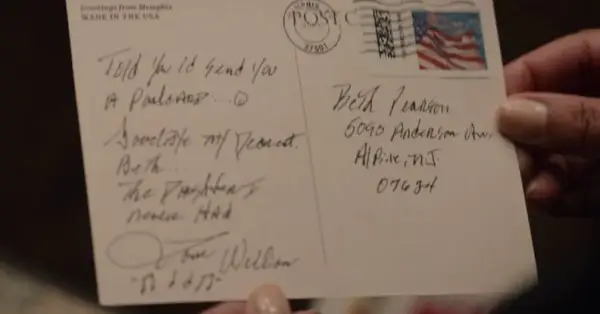 Greetings from Memphis
MADE IN THE USA
POSTC
Told ya I'd Send You
A Postcard...
Goodbye my Dearest
Beth...
The Daughter I
never Had
Love William
Beth Pearson
5090 Anderson Av
Alpine, N.J.
07624